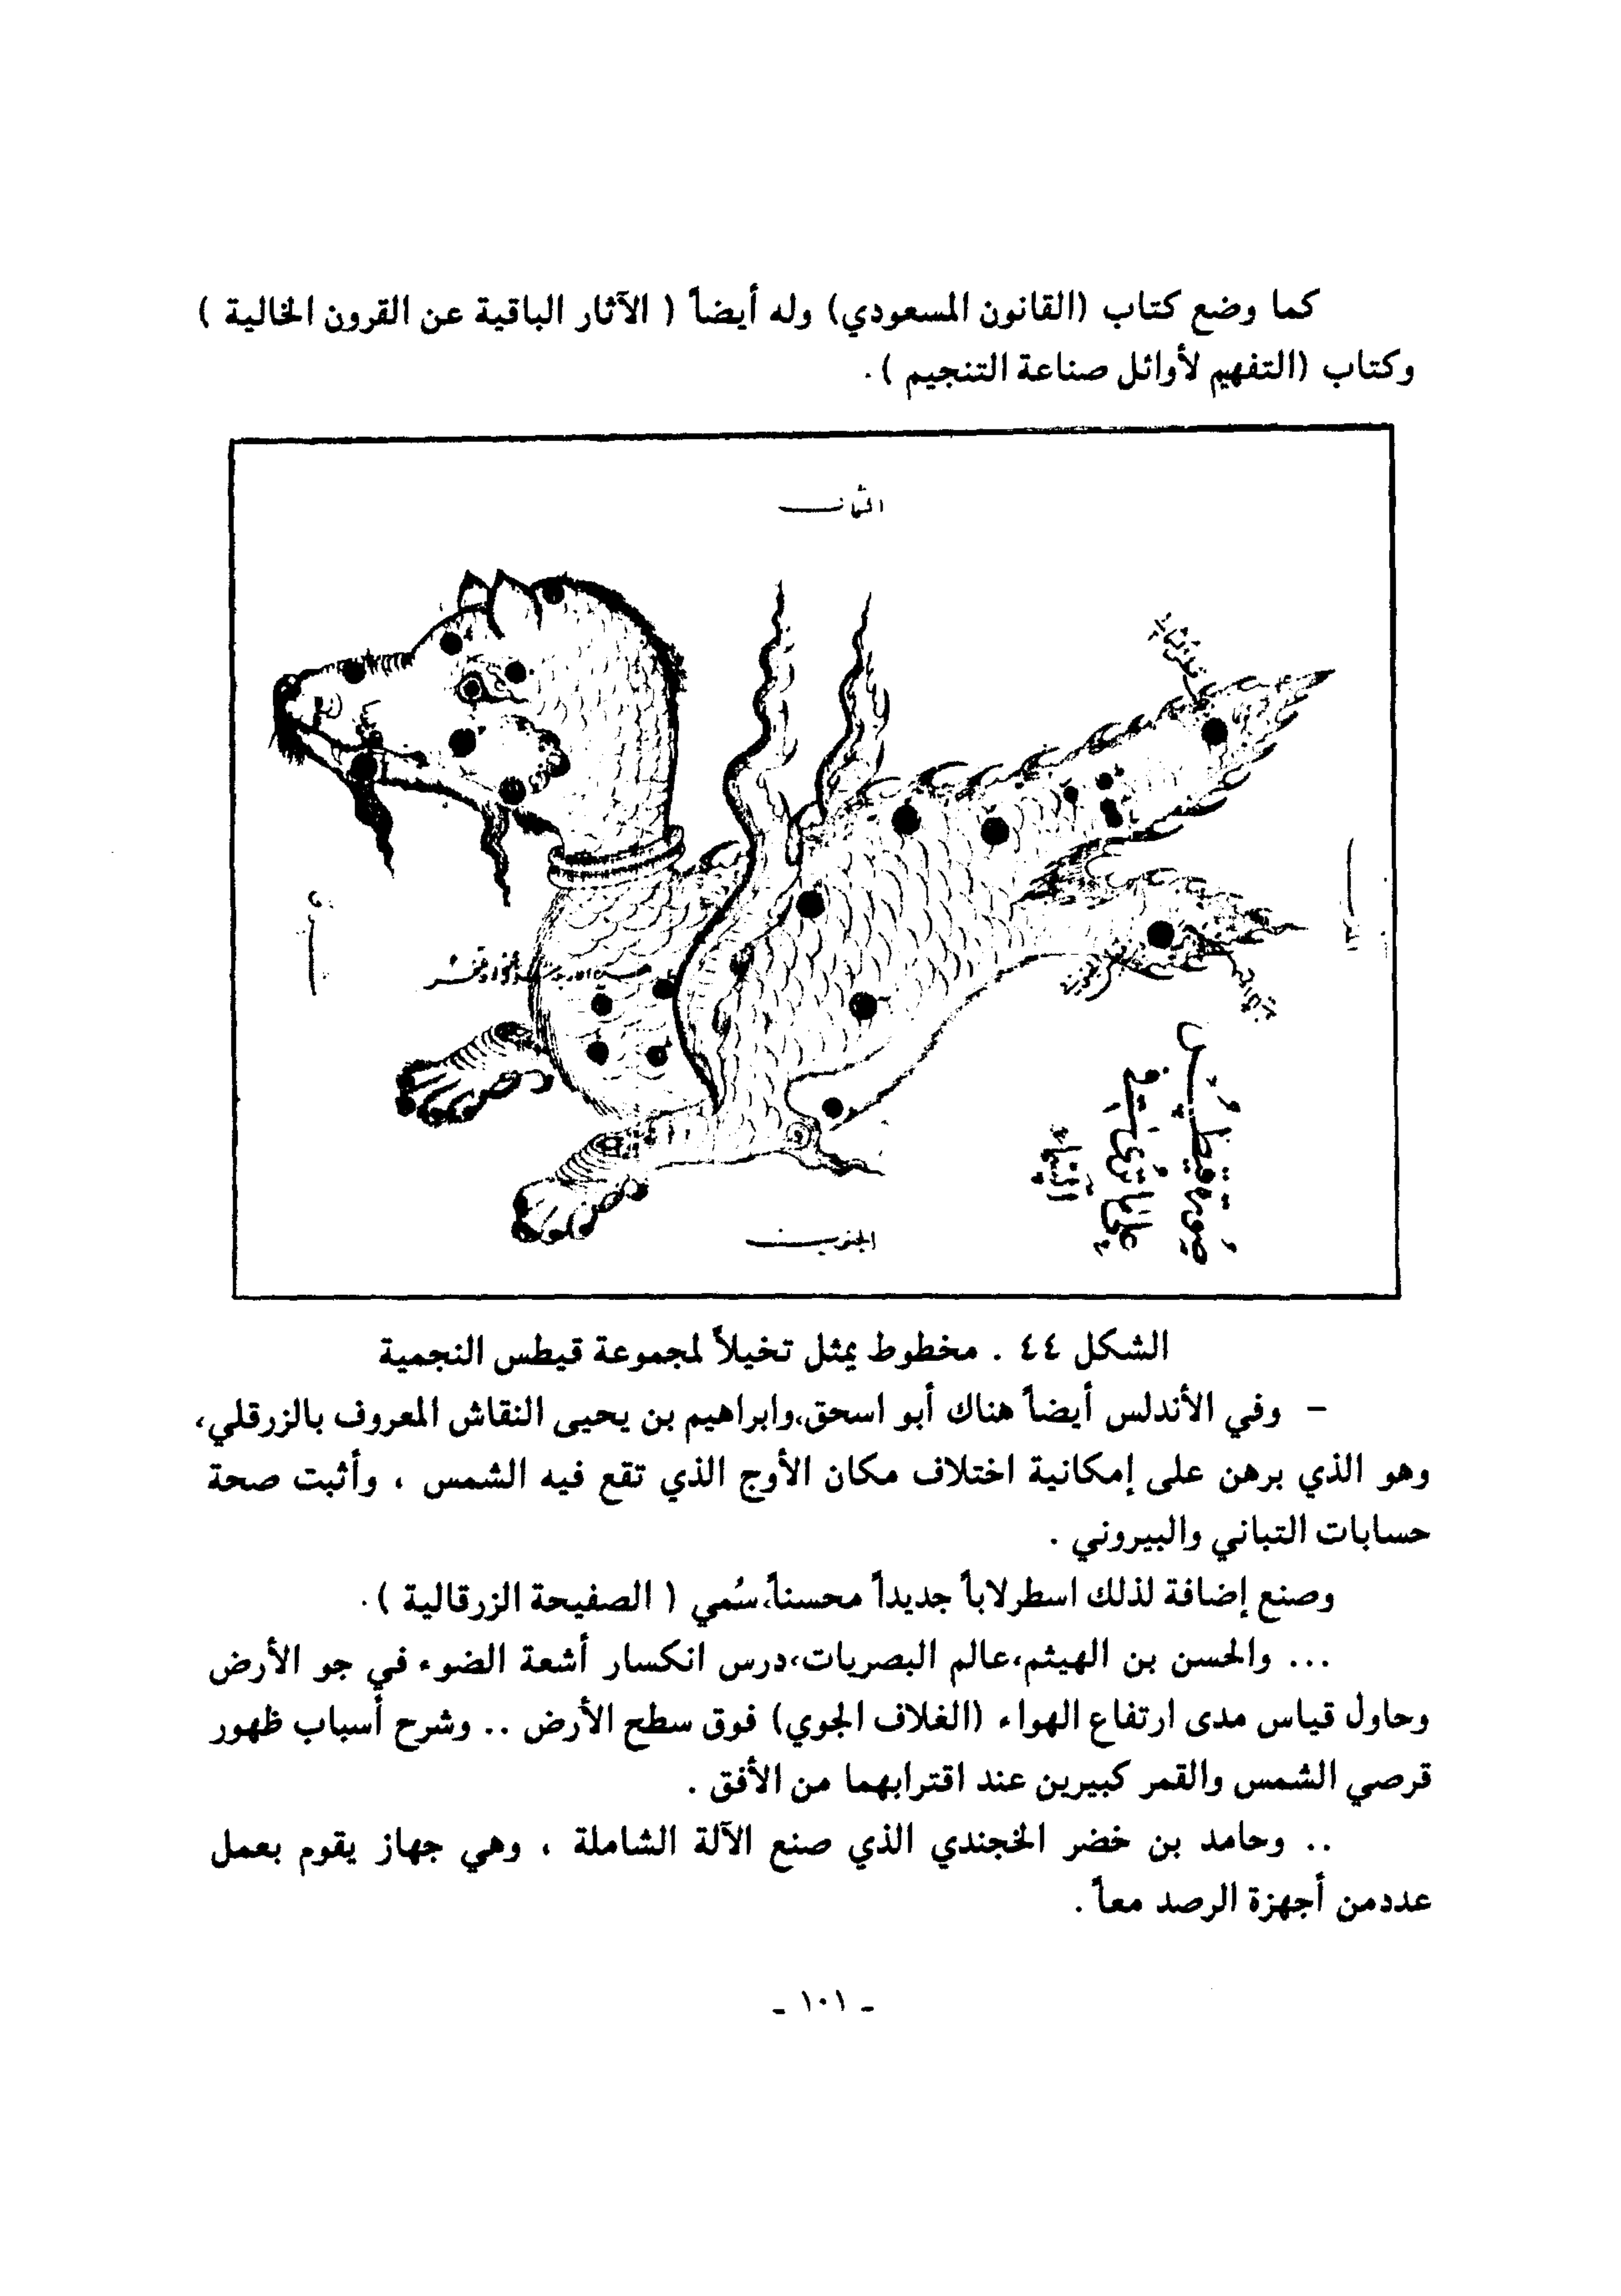 كما وضع كتاب (القانون المسعودي) وله أيضاً ( الآثار الباقية عن القرون الخالية )
وكتاب (التفهيم لأوائل صناعة التنجيم ) .
الجنوب
صورة قيطس
على ما ترى في
السماء
الشكل ٤٤ . مخطوط يمثل تخيلاً لمجموعة قيطس النجمية
- وفي الأندلس أيضاً هناك أبو اسحق،وابراهيم بن يحيى النقاش المعروف بالزرقلي،
وهو الذي برهن على إمكانية اختلاف مكان الأوج الذي تقع فيه الشمس ، وأثبت صحة
حسابات التباني والبيروني .
وصنع إضافة لذلك اسطرلاباً جديداً محسناً،سُمي ( الصفيحة الزرقالية ) .
... والحسن بن الهيثم،عالم البصريات،درس انكسار أشعة الضوء في جو الأرض
وحاول قياس مدى ارتفاع الهواء (الغلاف الجوي) فوق سطح الأرض .. وشرح أسباب ظهور
قرصي الشمس والقمر كبيرين عند اقترابهما من الأفق .
.. وحامد بن خضر الخجندي الذي صنع الآلة الشاملة ، وهي جهاز يقوم بعمل
عددمن أجهزة الرصد معاً .
- ١٠١ -